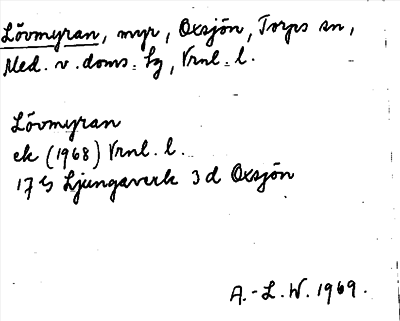 Lövmyran, myr, Oxsjön, Torps sn,
Med. v. doms. hg, Vrnl. l.
Lövmyran
ek (1968) Vrnl. l.
17 G Ljungaverk 3 d Oxsjön
A.-L. W. 1969.